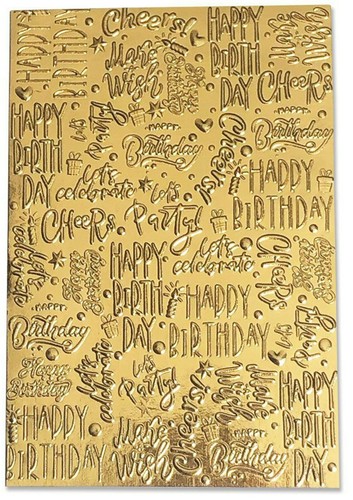 HAPPY
BIRTHDAY
Cheers!
Make
a
Wish
HAPPY
BIRTH
DAY
CHEERS
HAPPY
BIRTH
DAY
Party!
Cheers!
HAPPY
Birthday
Let's
celebrate
HAPPY
BIRTHDAY
CHEERS
Let's
Party!
HAPPY
BIRTH
DAY
Let's
celebrate
HAPPY
BIRTHDAY
Party!
HAPPY
Birthday
Happy
Birthday
Let's
celebrate
Let's
Party!
Cheers!
Make
a
Wish
HAPPY
BIRTHDAY
Make
a
Wish
HAPPY
BIRTH
DAY